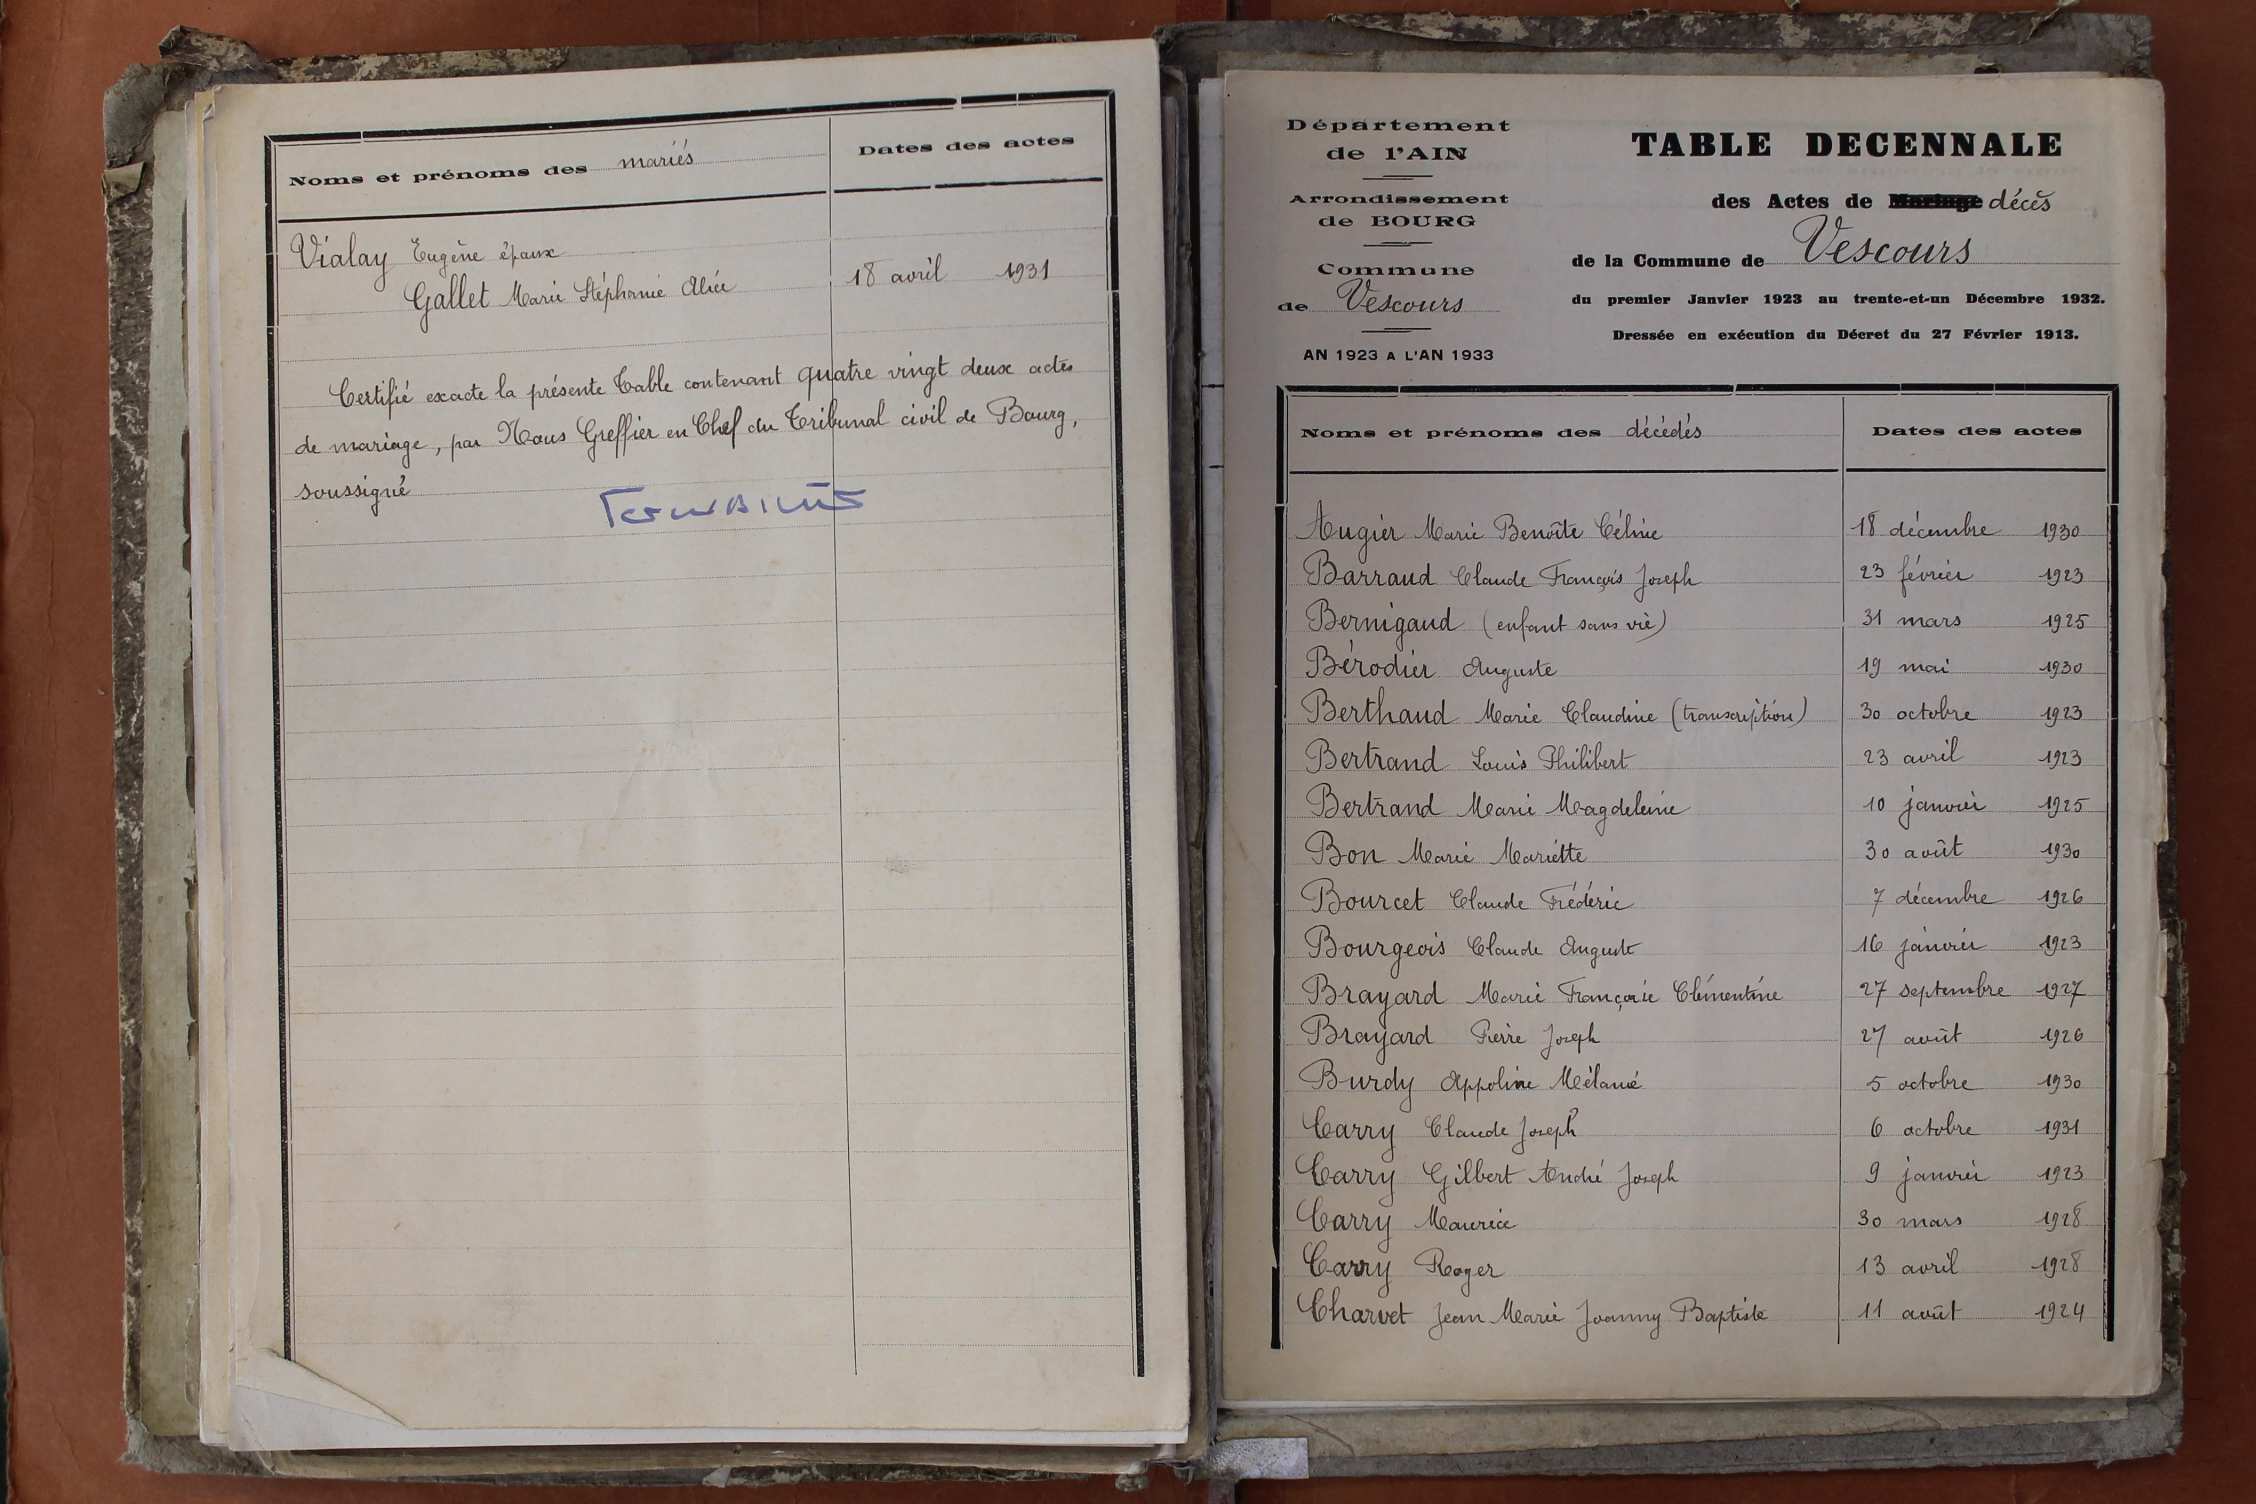 Noms et prénoms des mariés
Dates des actes
Vialay Eugène époux
Gallet Marie Stéphanie Alice 18 avril 1931
Certifié exacte la présente Table contenant quatre vingt deux actes
de mariage, par Nous Greffier en Chef du Tribunal civil de Bourg,
soussigné
Département
de l'AIN
Arrondissement
de BOURG
Commune
de Vescours
AN 1923 A L'AN 1933
TABLE DECENNALE
des Actes de Mariage décès
de la Commune de Vescours
du premier Janvier 1923 au trente-et-un Décembre 1932.
Dressée en exécution du Décret du 27 Février 1913.
Noms et prénoms des décédés
Dates des actes
Augier Marie Benoîte Céline 18 décembre 1930
Barraud Claude François Joseph 23 février 1923
Bernigaud (enfant sans vie) 31 mars 1925
Bérodier Auguste 19 mai 1930
Berthaud Marie Claudine (transcription) 30 octobre 1923
Bertrand Louis Philibert 23 avril 1923
Bertrand Marie Magdeleine 10 janvier 1925
Bon Marie Mariette 30 août 1930
Bourcet Claude Frédéric 7 décembre 1926
Bourgeois Claude Auguste 16 janvier 1923
Brayard Marie Françoise Clémentine 27 septembre 1927
Brayard Pierre Joseph 27 août 1926
Burdy Appoline Mélanie 5 octobre 1930
Carry Claude Joseph 6 octobre 1931
Carry Gilbert André Joseph 9 janvier 1923
Carry Maurice 30 mars 1928
Carry Roger 13 avril 1928
Charvet Jean Marie Joanny Baptiste 11 août 1924